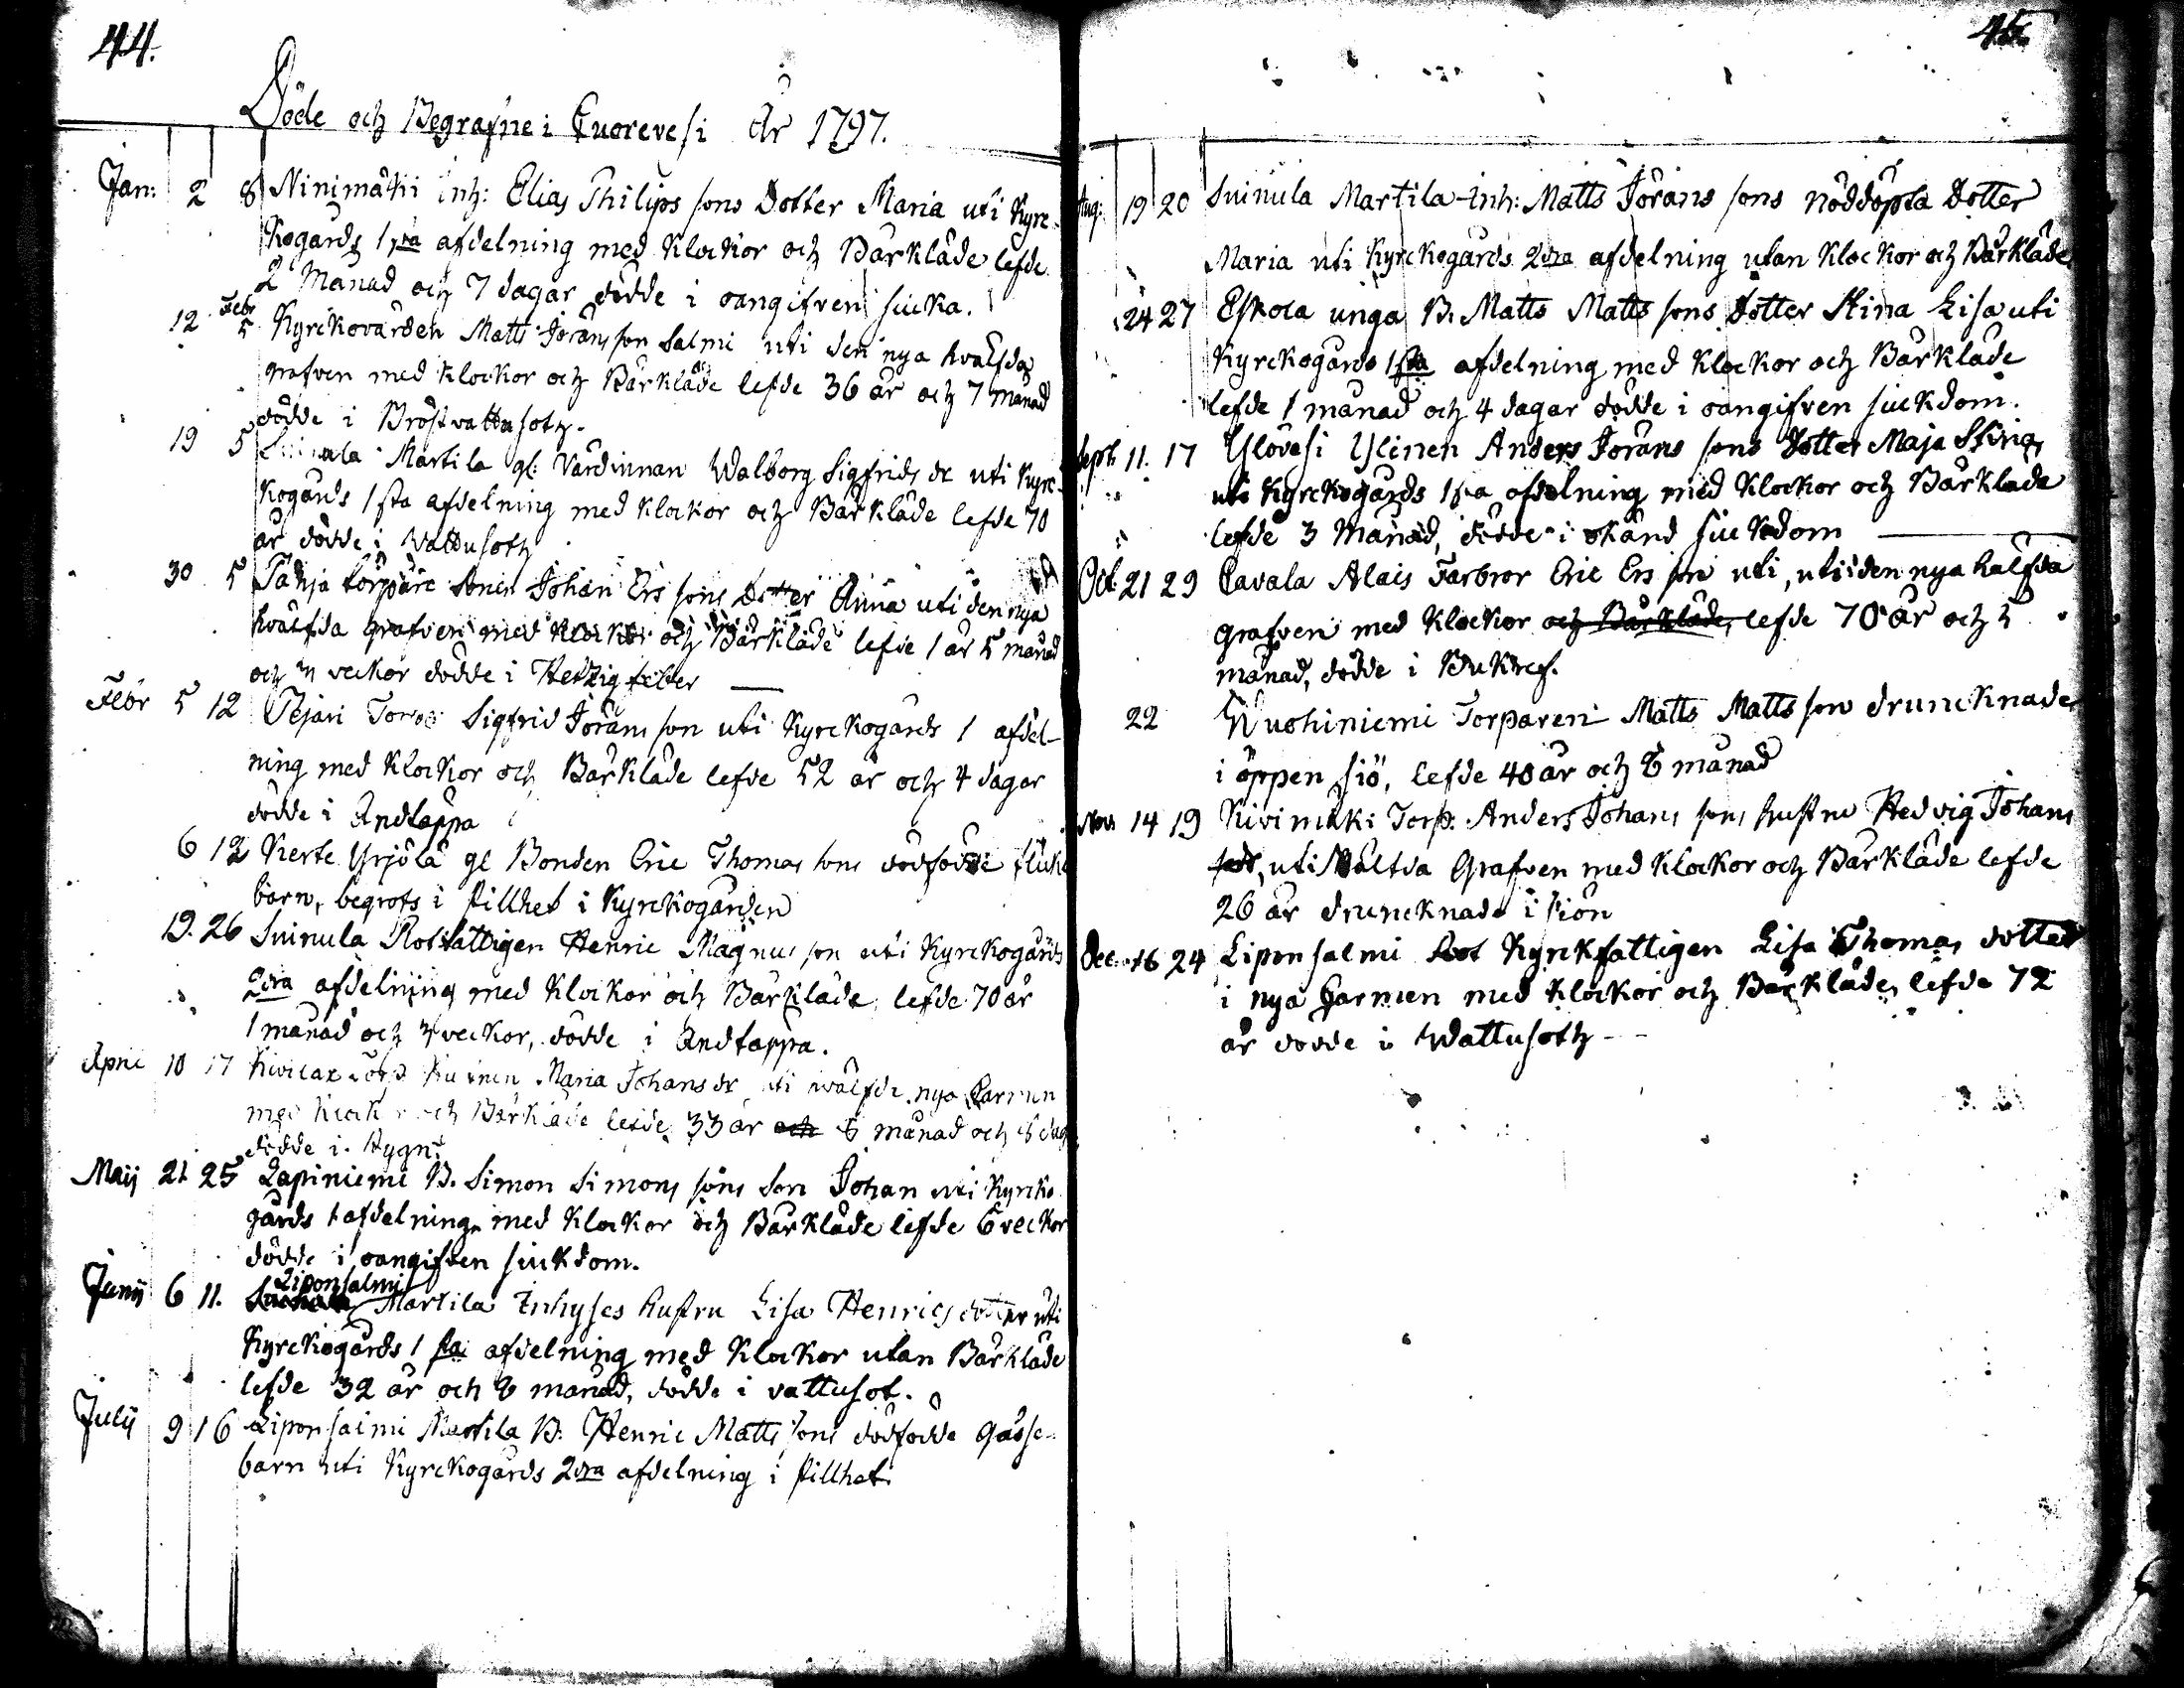 44.
Döde och Begrafne i Cuorevesi År 1797.
Jan: 2 8 Ninimäkii Inh: Elias Philips sons Dotter Maria uti Kyrc-
kogårds 1sta afdelning med Klockor och Bårkläde lefde
2 Månad och 7 dagar dödde i oangifven siucka.
12 Febr 5 Kyrckovärden Matts Jörans son Salmi uti den nya hvälfda
grafven med Klockor och Bårkläde lefde 36 år och 7 månad
dödde i Bröstvattusoth.
19 5 Martila gl: Värdinnan Walborg Sigfrids dr uti Kyrc-
kogårds 1sta afdelning med Klockor och Bårkläde lefde 70
år dödde i Wattusoth
30 5 torpare Johan Ers sons Dotter Anna uti den nya
hvälfda grafven med Klockor och Bårkläde lefde 1 år 5 månad
och veckor dödde i Hetzig feber
Febr 5 12 Pejari Torp: Sigfrid Jörans son uti Kyrckogårds 1 afdel-
ning med Klockor och Bårkläde lefde 52 år och 4 dagar
dödde i Andtäppa
6 12 Kerte Yrjölä gl Bonden Eric Thomas sons dödfödde flicke
barn, begrofs i stillhet i Kyrckogården
19. 26 Suinula Rotfattigen Henric Magnus son uti Kyrckogårds
2dra afdelning med Klockor och Bårkläde, lefde 70 år
1 månad och 3 veckor, dödde i Andtäppa.
April 10 17 Maria Johans dr uti hvälfde nya Carmen
med Klockor och Bårkläde lefde 33 år och 6 månad och 6 dag
dödde i Hygn:
Maij 21 25 Lapiniemi B. Simon Simons sons Son Johan uti Kyrcko
gårds 1 afdelning med Klockor och Bårkläde lefde 6 veckor
dödde i oangifven siuckdom.
Liponsalmi
Junij 6 11. Martila Inhyses hustru Lisa Henrics dotter uti
Kyrckogårds 1 sta afdelning med Klockor utan Bårkläde
lefde 32 år och 8 månad, dödde i vattusot.
Julij 9 16 Liponsalmi Martila B: Henric Matts sons dödfödde gåsse-
barn uti Kyrckogårds 2dra afdelning i stillhet.
45.
Aug: 19 20 Suinula Martila Inh: Matts Jörans sons nöddöpta Dotter
Maria uti Kyrckogårds 2dra afdelning utan Klockor och Bårkläde
24 27 Eskola unga B. Matts Matts sons dotter Stina Lisa uti
Kyrckogårds 1sta afdelning med Klockor och Bårkläde
lefde 1 månad och 4 dagar dödde i oangifven siuckdom.
Sept. 11. 17 Ylöväsi Ylinen Anders Jörans sons dotter Maja Stina
uti Kyrckogårds 1sta afdelning med Klockor och Bårkläde
lefde 3 Månad, dödde i okänd siuckdom
Oct. 21 29 Cavala Alais Farbror Eric Ers son uti, uti den nya hälfda
grafven med Klockor och Bårkläde, lefde 70 år och 5
månad, dödde i Bukref.
22 Wuohiniemi Torparen Matts Matts son druncknade
i öppen siö, lefde 40 år och 8 månad
Nov. 14 19 Kivimäki Torp: Anders Johans sons hustru Hedvig Johans
uti Grafven med Klockor och Bårkläde lefde
26 år druncknade i siön
Dec. 16 24 Liponsalmi Kyrkfattigen Lisa Thomas dotter
i nya Carmen med Klockor och Bårkläde, lefde 72
år dödde i Wattusoth